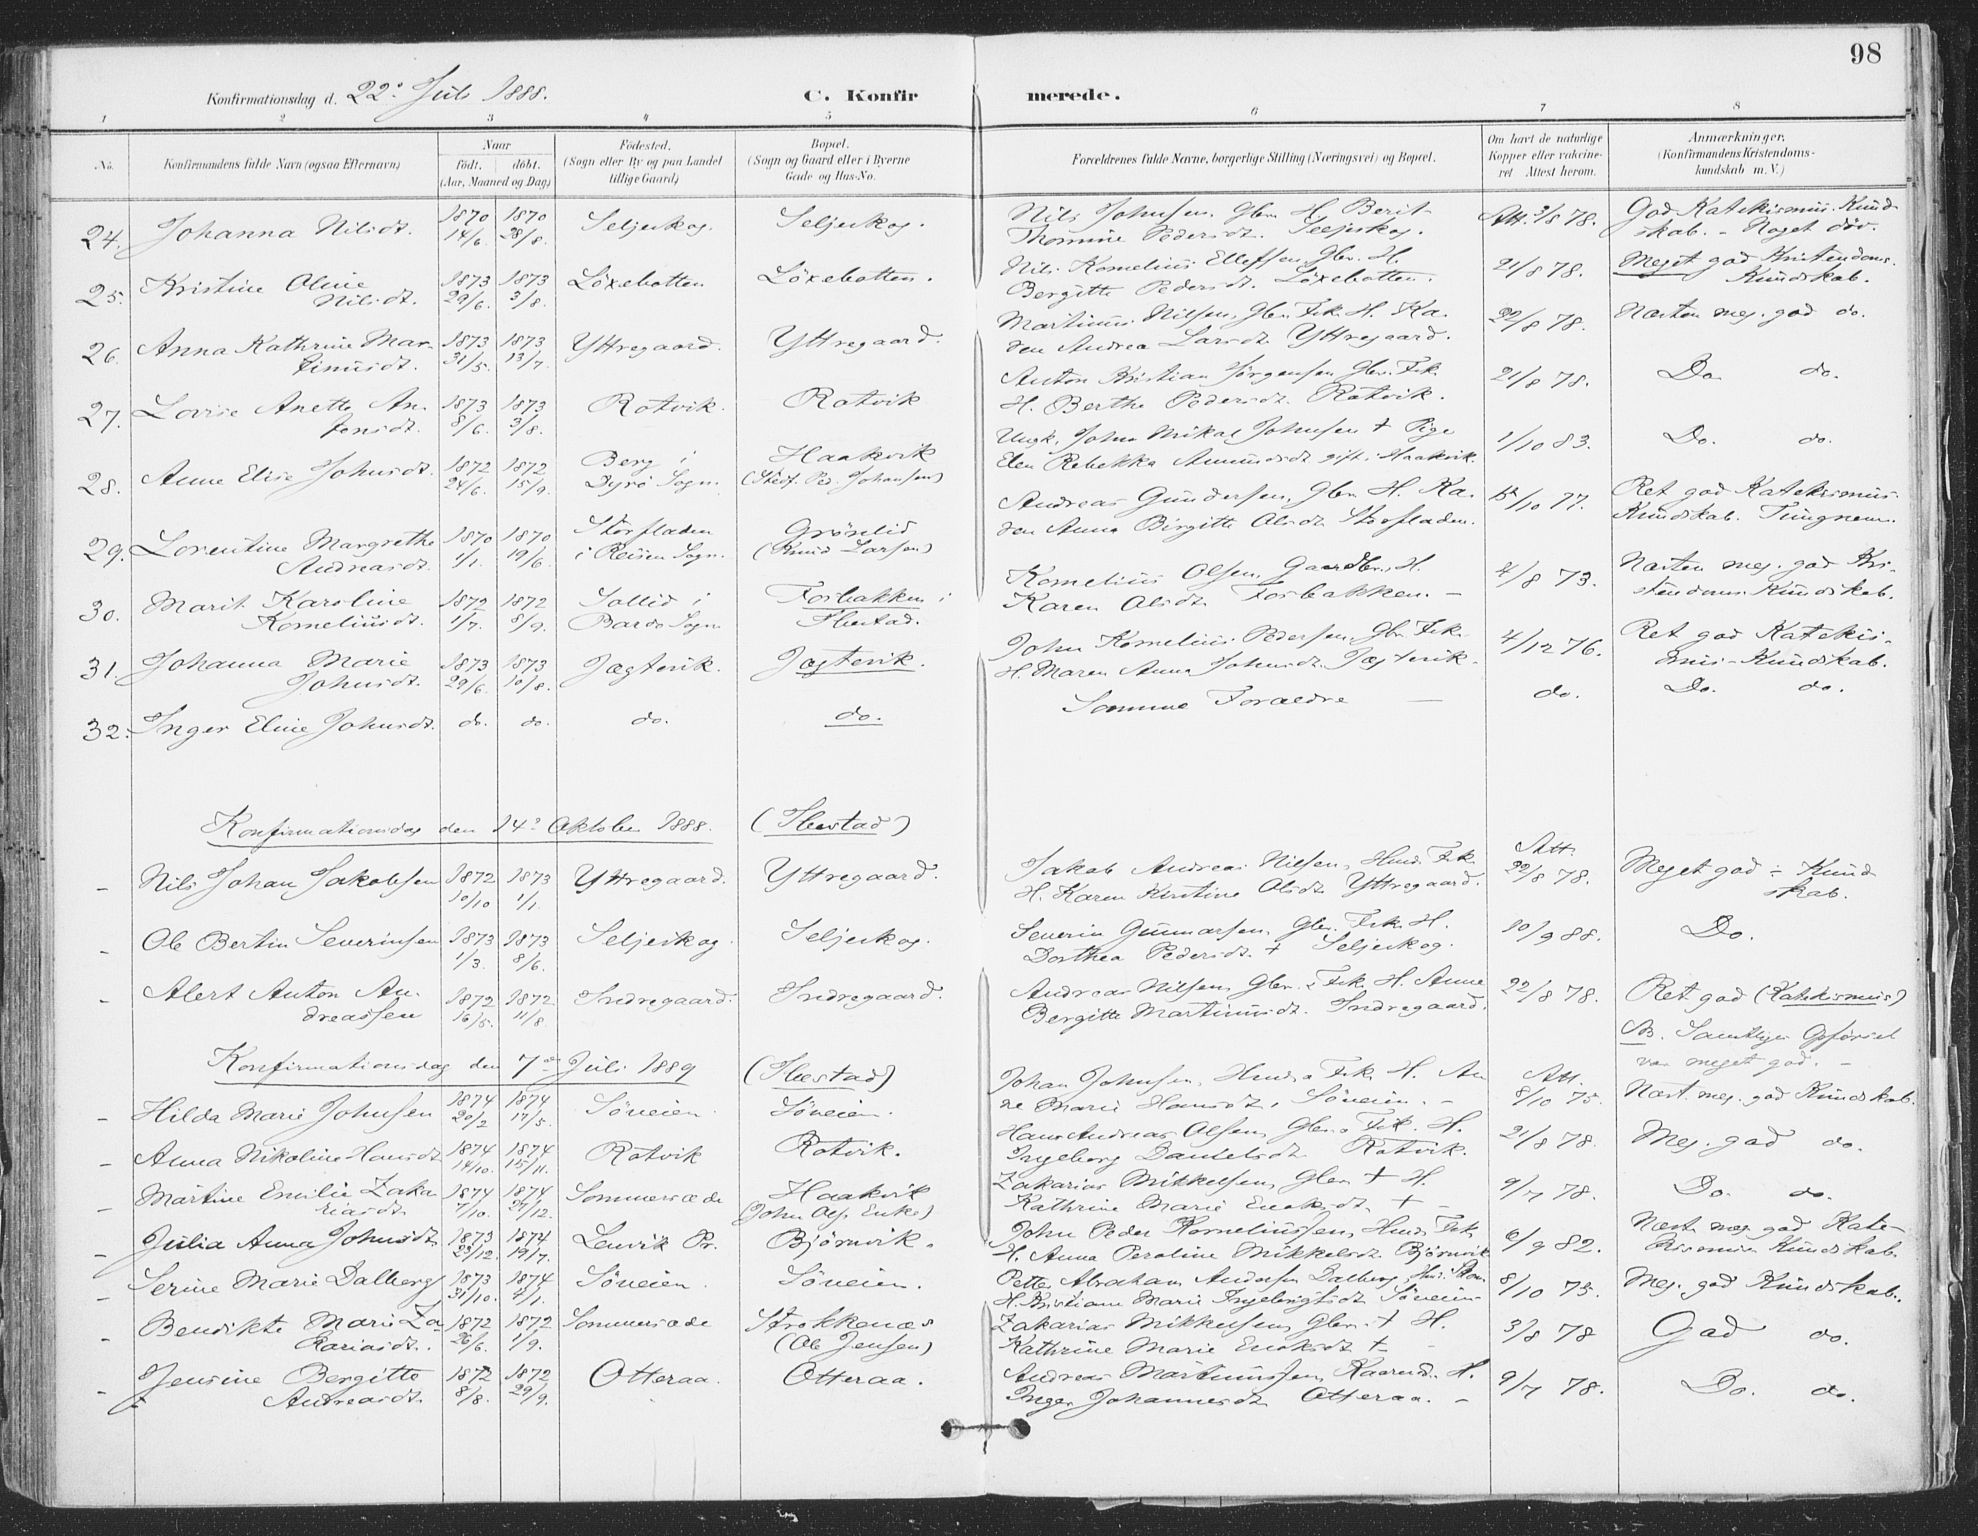 98
Konfirmationsdag d. 22de Juli 1888. C. Konfir merede.
1 2 3 4 5 6 7 8
No. Konfirmandens fulde Navn (ogsaa Efternavn) Naar født. døbt. (Aar, Maaned og Dag) Fødested. (Sogn eller By og paa Landet tillige Gaard) Bopæl. (Sogn og Gaard eller i Byerne Gade og Hus-No. Forældrenes fulde Navne, borgerlige Stilling (Næringsvei) og Bopæl. Om havt de naturlige Kopper eller vakcineret Attest herom. Anmærkninger. (Konfirmandens Kristendomskundskab m. V.)
24. Johanna Nilsdt. 1870 14/6. 1870 28/8. Seljeskog. Seljeskog. Nils Johnsen. Gbr. H. Berit Thomine Pedersdt. Seljeskog. Att. 3/8 78. God Katekismus. Kundskab. - Noget døv.
25. Kristine Oline Nilsdt. 1873 29/6. 1873 3/8. Löxebotten Löxebotten. Nils Kornelius Ellefsen Gbr. H. Bergitte Pedersdt. Löxebotten. 21/8 78. Meget god Kristendoms Kundskab.
26. Anna Kathrine Martinusdt. 1873 31/5. 1873 13/7. Yttregaard. Yttregaard. Martinus Nilsen, Gbr. Fsk. H. Karen Andrea Larsdt. Yttregaard. 22/8 78. Næsten meg. god do.
27. Lovise Anette Antonsdt. 1873 8/6. 1873 3/8. Rotvik. Rotvik Anton Kristian Jörgensen Gbr. Fsk. H. Berthe Pedersdt. Rotvik. 21/8 78. Do. do.
28. Anne Elise Johnsdt. 1872 24/6. 1872 15/9. Berg i Dyrö Sogn. Haakvik (Stedf. Ped. Johansen) Ungk. John Mikal Johnsen + Pige Elen Rebekka Amundsdt gift. Haakvik. 1/10 83. Do. do.
29. Lorentine Margrethe Andreasdt. 1870 1/1. 1870 19/6. Storfladen i Reisen Sogn. Grönlid (Knud Larsen) Andreas Gundersen, Gbr. H. Karen Anna Birgitte Olsdt. Storfladen. 15/10 77. Ret god Katekismus Kundskab. Tungnem.
30. Marit Karoline Korneliusdt. 1872 1/7. 1872 8/9. Sollid i Bardo Sogn. Forbakken i Ibestad. Kornelius Olsen, Gaardbr. H. Karen Olsdt. Forbakken. - 4/8 73. Næsten meg. god Kristendoms Kundskab.
31. Johanna Marie Johnsdt. 1873 29/6. 1873 10/8. Jægtevik. Jægtevik. John Kornelius Pedersen, Gbr. Fsk. H. Maren Anna Johnsdt. Jægtevik. 4/12 76. Ret god Katekismus-Kundskab.
32. Inger Eline Johnsdt. do. do. do. do. Samme Forældre - do. Do. do.
Konfirmationsdag den 14de Oktober 1888. (Ibestad)
- Nils Johan Jakobsen 1872 10/10 1873 1/1. Yttregaard. Yttregaard. Jakob Andreas Nilsen, Husm. Fsk. H. Karen Kirstine Olsdt. Yttregaard. Att. 22/8 78. Meget god Kundskab.
- Ole Bertin Severinsen 1873 1/3. 1873 8/6. Seljeskog. Seljeskog. Severin Gunnarsen, Gbr. Fsk. H. Dorthea Pedersdt. + Seljeskog. 10/9 88. Do.
- Alert Anton Andreassen 1872 16/5. 1872 11/8. Indregaard. Indregaard. Andreas Nilsen, Gbr. Fsk. H. Anne Bergitte Martinusdt. Indregaard. 22/8 78. Ret god (Katekismus)
NB. Samtliges Opførsel var meget god. -
Konfirmationsdag den 7de Juli 1889 (Ibestad)
- Hilda Marie Johnsen 1874 20/2 1874 17/5. Söveien. Söveien. Johan Johnsen, Husm. Fsk. H. Anne Marie Hansdt. Söveien. - Att. 8/10 75. Næst. meg. god Kundskab.
- Anna Nikoline Hansdt. 1874 14/10. 1874 15/11. Rotvik Rotvik. Hans Andreas Olsen, Gbr. Fsk. H. Ingeborg Danielsdt. Rotvik. 21/8 78. Meg. god do.
- Martine Emilie Zakariasdt. 1874 7/10. 1874 27/12. Sommersæde Haakvik (John Ols. Enke) Zakarias Mikkelsen, Gbr. + H. Kathrine Marie Enoksdt. + - 9/7 78. Do. do.
- Julia Anna Johnsdt. 1873 23/12. 1874 19/7. Lenvik Pr. Björnvik. John Peder Korneliussen, Husm. Fsk. H. Anna Peroline Mikkelsdt. Björnvik 6/9 82. Næst. meg. god Katekismus Kundskab.
- Serine Marie Dalberg 1873 31/10. 1874 4/1. Söveien. Söveien. Petter Abraham Andersen Dalberg, H. Kristiane Marie Ingebrigtsdt. Söveien 8/10 75. Meg. god Kundskab.
- Bendikte Marie Zakariasdt. 1872 26/6. 1872 1/9. Sommersæde Strokkenæs (Ole Jensen) Zakarias Mikkelsen, Gbr. + H. Kathrine Marie Enoksdt + - 3/8 78 God do.
- Jensine Bergitte Andreasdt. 1872 8/8. 1872 29/9. Otteraa. Otteraa. Andreas Martinussen, Kaarmd. H. Inger Johannesdt. Otteraa. - 9/7 78. Do. do.